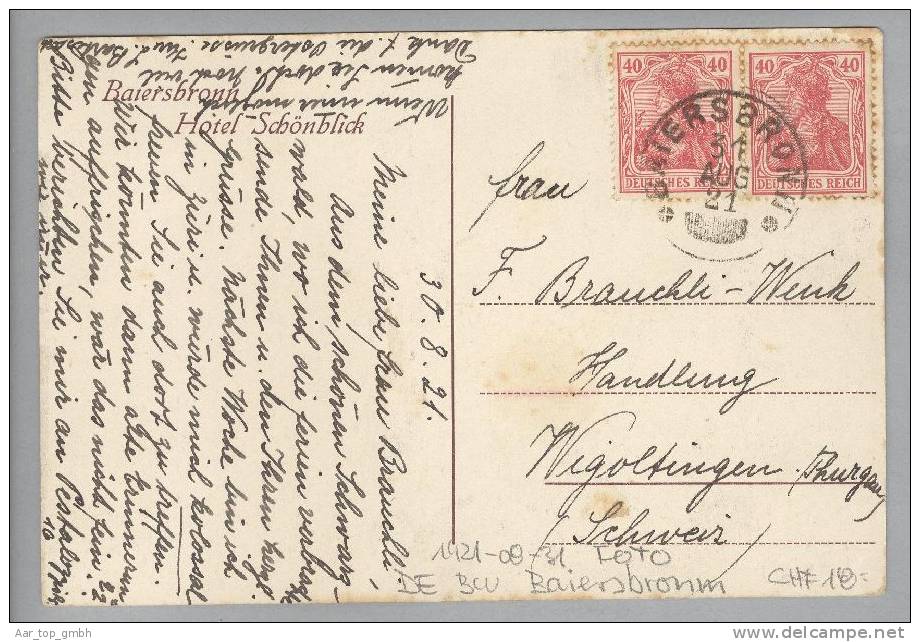 Baiersbronn
Hotel Schönblick
30. 8. 21.
Meine liebe Frau Brauchli!
Aus dem schönen Schwarz-
wald, wo ich die Ferien verbringe
sende Ihnen u. den Ihren herzl.
Grüsse. Nächste Woche bin ich
in Züri u. würde mich kolossal
freuen Sie auch dort zu treffen.
Wir könnten dann alte Erinnerun
gen auffrischen, wär das nicht fein?
Bitte berichten Sie mir an Pestalozzistr.
10
Wenn einer möglich
kommen Sie doch. Noch viel
Dank f. die Ostergrüsse.
40 40
DEUTSCHES REICH
40 40
DEUTSCHES REICH
BAIERSBRONN
31
AUG
21
Frau
F. Brauchli-Wenk
Handlung
Wigoltingen (Thurgau)
(Schweiz)
1921-08-31 FOTO
DE BW Baiersbronn
CHF 10=
Aar_top_gmbh
delcampe.net